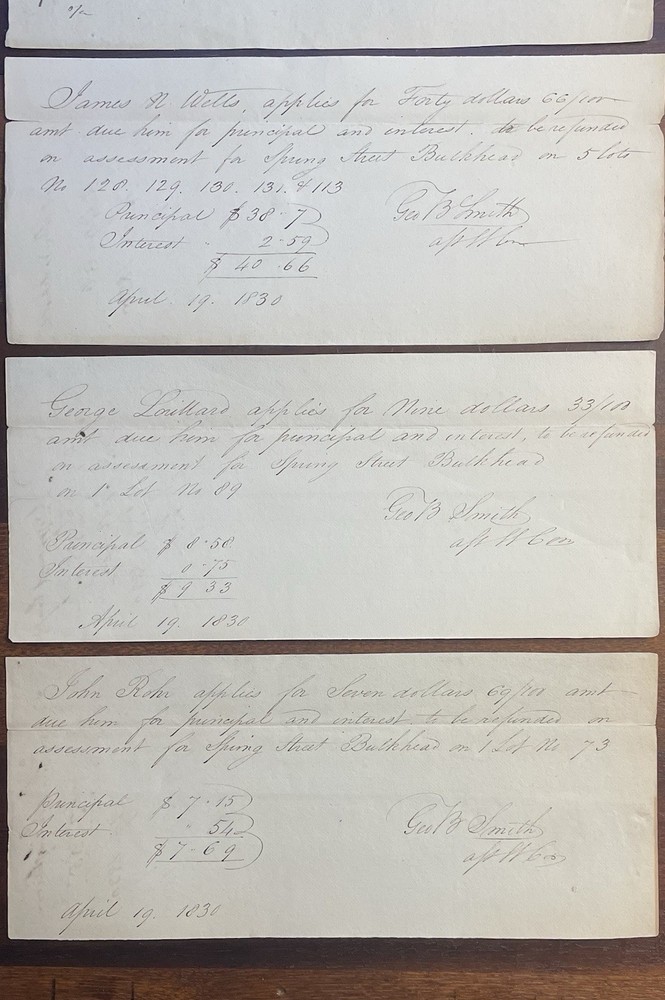 James N Wells, applies for Forty dollars 66/100
amt due him for principal and interest. to be refunded
on assessment for Spring Street Bulkhead on 5 lots
No 128. 129. 130. 131. & 113
Principal $ 38.7
Interest " 2.59
$ 40.66
Geo B Smith
April. 19. 1830
George Lorillard applies for Nine dollars 33/100
amt due him for principal and interest, to be refunded
on assessment for Spring Street Bulkhead
on 1 Lot No 89
Geo B Smith
Principal $ 8.58
Interest 0.75
$ 9 33
April 19. 1830
John Rohr applies for Seven dollars 69/100 amt
due him for principal and interest. to be refunded on
assessment for Spring Street Bulkhead on 1 Lot No 73
Principal $ 7.15
Interest. 54
$ 7.69
Geo B Smith
April 19. 1830